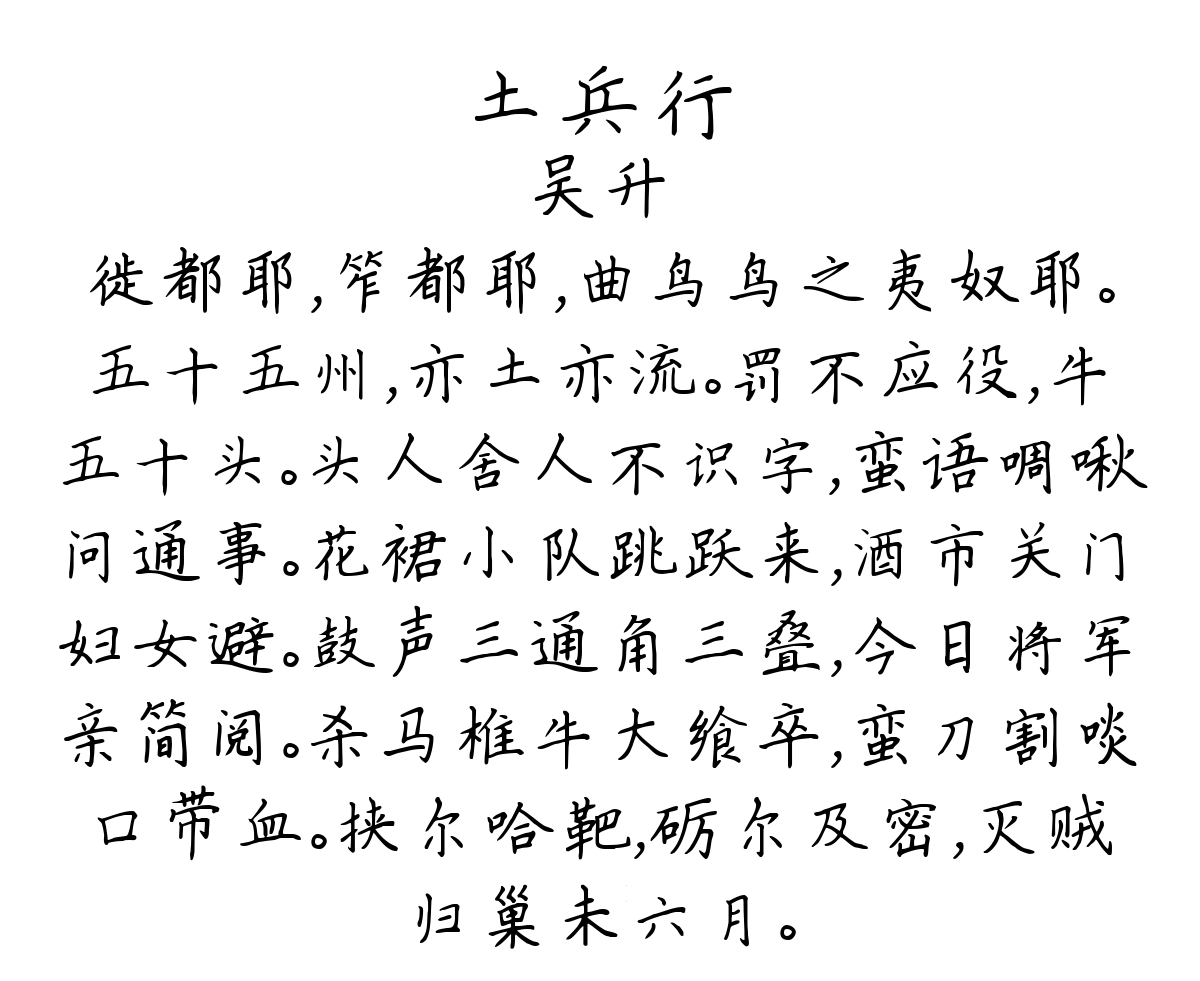 土兵行
吴升
徙都耶,笮都耶,曲鸟鸟之夷奴耶。
五十五州,亦土亦流。罚不应役,牛
五十头。头人舍人不识字,蛮语啁啾
问通事。花裙小队跳跃来,酒市关门
妇女避。鼓声三通角三叠,今日将军
亲简阅。杀马椎牛大飨卒,蛮刀割啖
口带血。挟尔哈靶,砺尔及密,灭贼
归巢未六月。